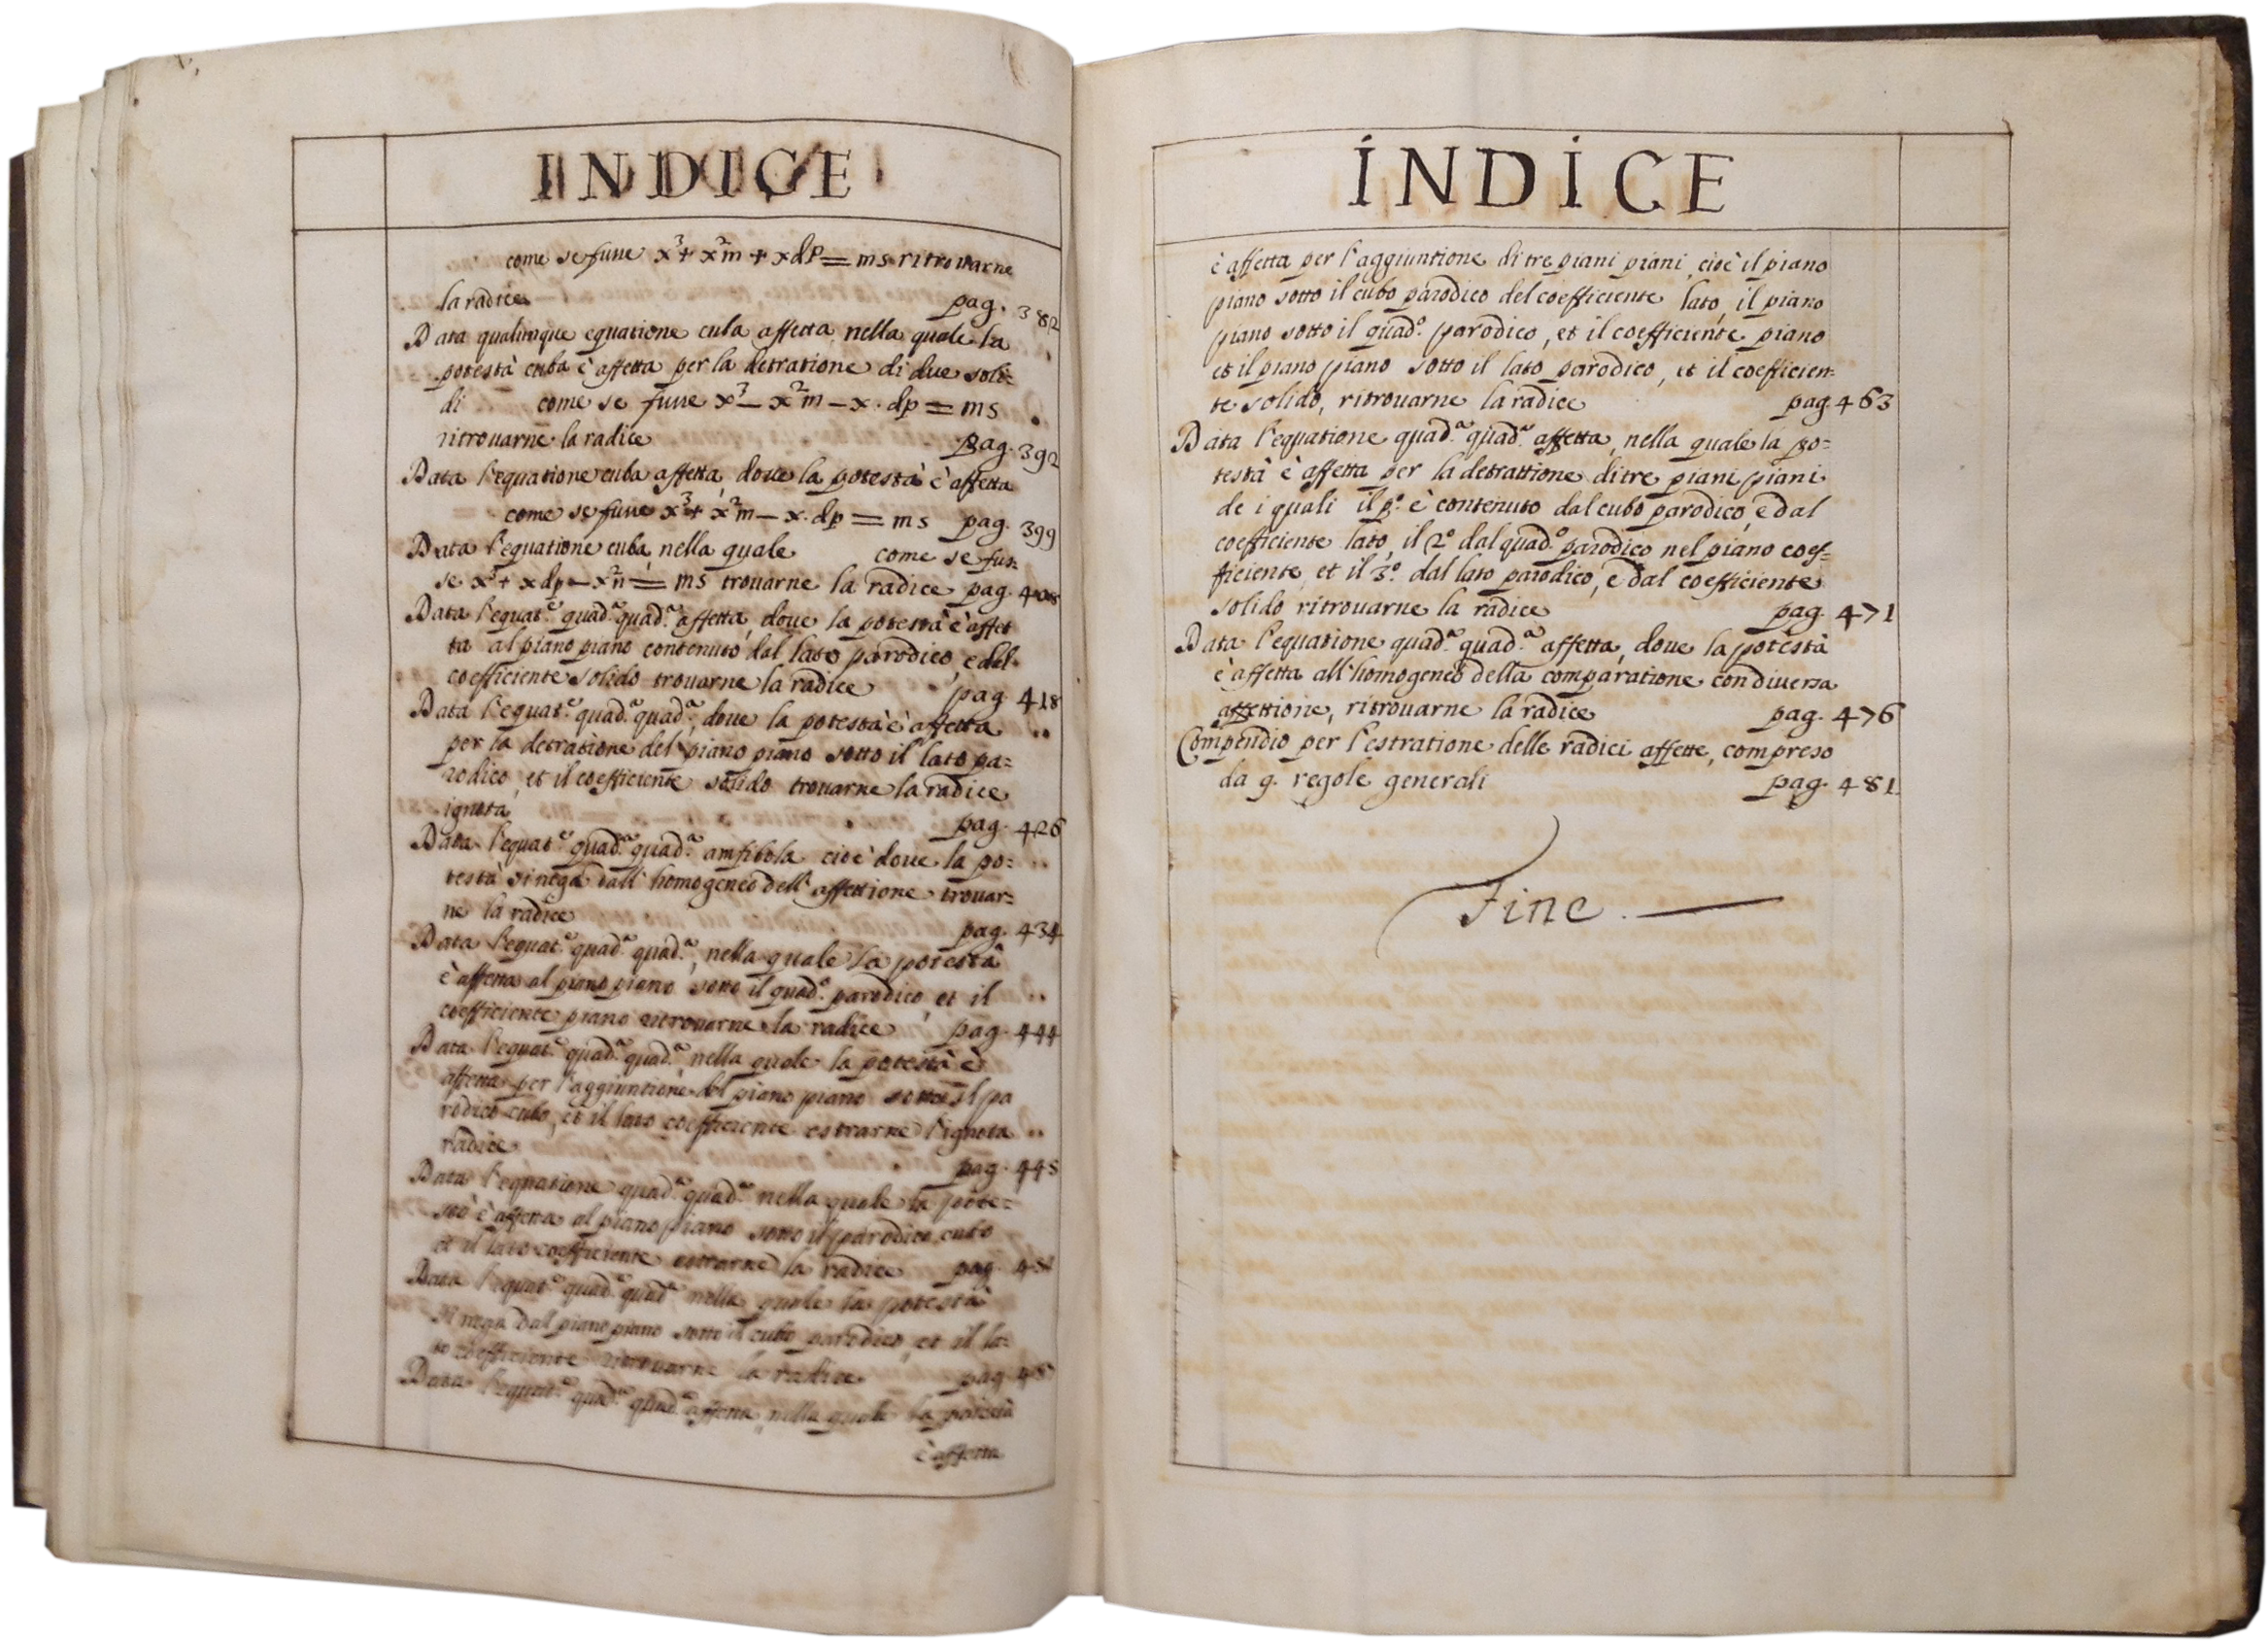 INDICE
come se fusse x³ + x²m + xdp = ms ritrovarne
la radice pag. 382
Data qualunque equatione cuba affetta nella quale la
potestà cuba è affetta per la detratione di due soli=
di come se fusse x³ – x²m – x. dp = ms
ritrouarne la radice pag. 392
Data l'equatione cuba affetta, doue la potestà è affetta
come se fusse x³ + x²m – x. dp = ms pag. 399
Data l'equatione cuba, nella quale come se fus=
se x³ + x dp – x²n = ms trouarne la radice pag. 408
Data l'equat.e quad.a quad.a affetta, doue la potestà è affet
ta al piano piano contenuto dal lato parodico, e dal
coefficiente solido trouarne la radice pag. 418
Data l'equat.e quad.a quad.a, doue la potestà è affetta
per la detratione del piano piano sotto il lato pa=
rodico, et il coefficiente solido trouarne la radice
ignota pag. 426
Data l'equat.e quad.a quad.a amfibola cioè doue la po=
testà si nega dall' homogeneo dell' affettione trouar=
ne la radice pag. 434
Data l'equat.e quad.a quad.a, nella quale la potestà
è affetta al piano piano sotto il quad.o parodico, et il
coefficiente piano ritrouarne la radice pag. 444
Data l'equat.e quad.a quad.a nella quale la potestà è
affetta per l'aggiuntione del piano piano sotto il pa
rodico cubo, et il lato coefficiente estrarne l'ignota
radice pag. 448
Data l'equatione quad.a quad.a nella quale la pote=
stà è affetta al piano piano sotto il parodico cubo
et il lato coefficiente estrarne la radice pag.
Data l'equat.e quad.a quad.a nella quale la potestà
si nega dal piano piano sotto il cubo parodico, et il la=
to coefficiente ritrouarne la radice pag.
Data l'equat.e quad.a quad.a affetta, nella quale la potestà
è affetta
INDICE
è affetta per l'aggiuntione di tre piani piani, cioè il piano
piano sotto il cubo parodico del coefficiente lato, il piano
piano sotto il quad.o parodico, et il coefficiente piano
et il piano piano sotto il lato parodico, et il coefficien=
te solido, ritrouarne la radice pag. 463
Data l'equatione quad.a quad.a affetta, nella quale la po=
testà è affetta per la detrattione di tre piani piani
de i quali il p.o è contenuto dal cubo parodico, e dal
coefficiente lato, il 2.o dal quad.o parodico nel piano coef=
ficiente, et il 3.o dal lato parodico, e dal coefficiente
solido ritrouarne la radice pag. 471
Data l'equatione quad.a quad.a affetta, doue la potestà
è affetta all' homogeneo della comparatione con diuersa
affettione, ritrouarne la radice pag. 476
Compendio per l'estratione delle radici affette, compreso
da 9. regole generali pag. 481.
Fine.